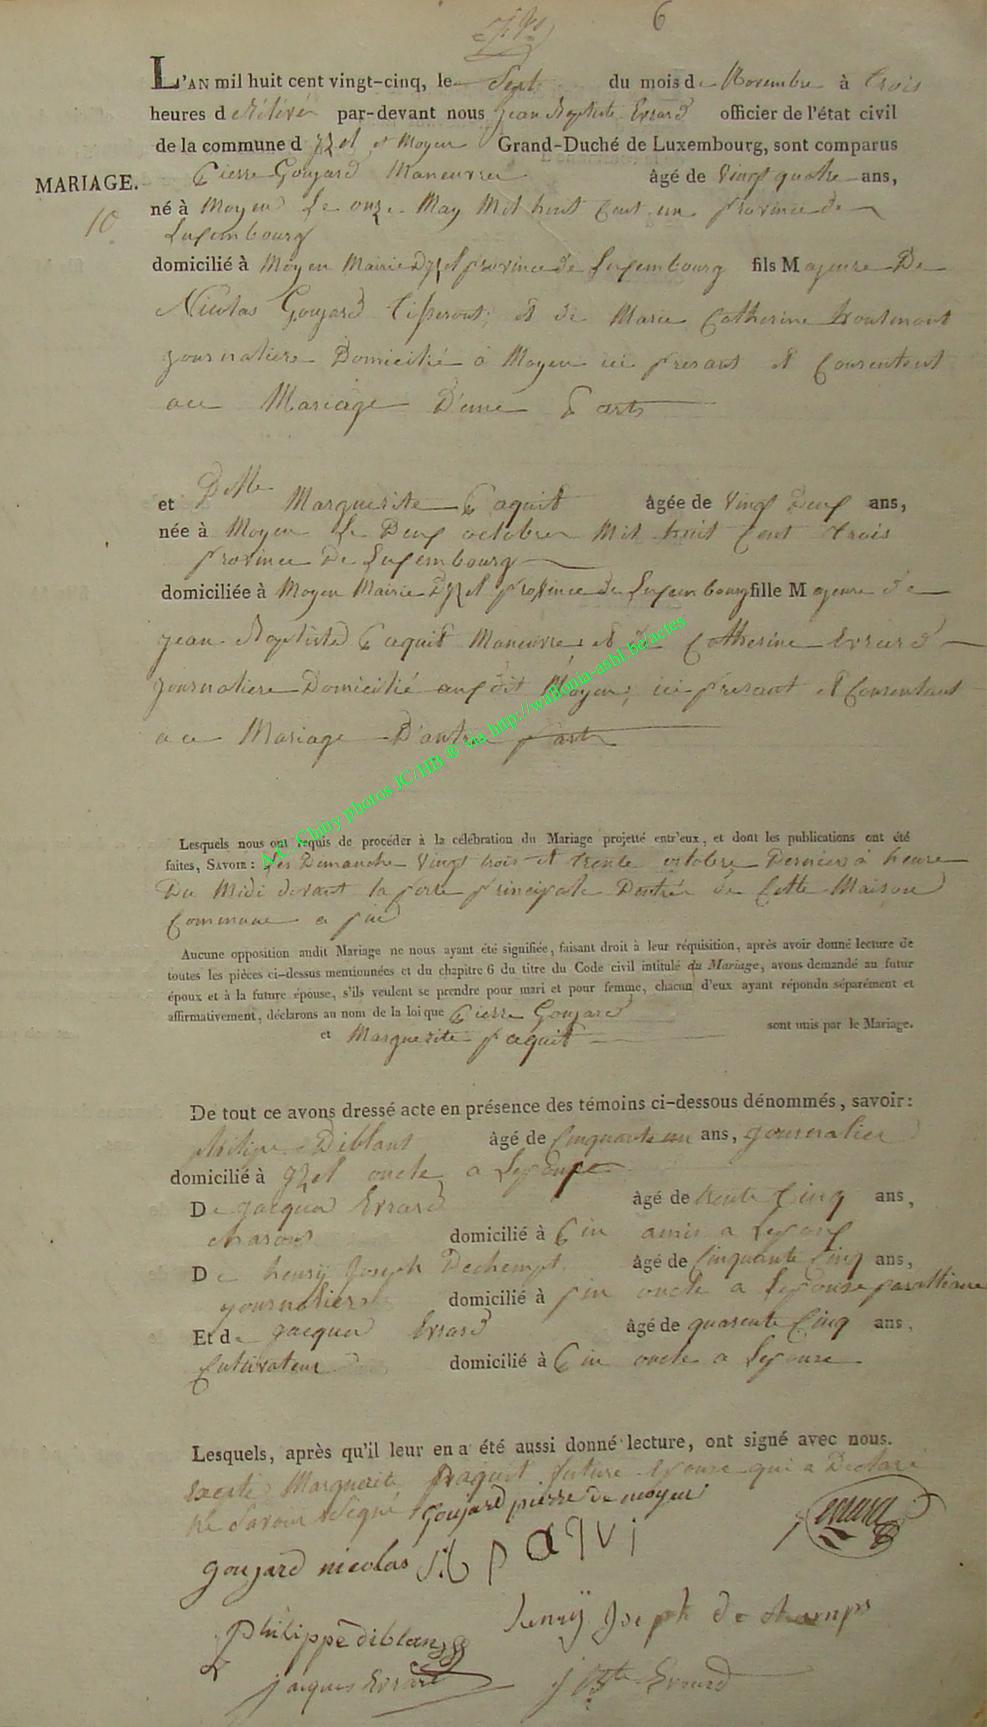 6
L'AN mil huit cent vingt-cinq, le Sept du mois de Novembre à trois
heures d relévé par-devant nous jean Baptiste Evrard officier de l'état civil
de la commune d yzel et Moyen Grand-Duché de Luxembourg, sont comparus
MARIAGE.
10
Pierre Goujard Maneuvrer âgé de vingt quatre ans,
né à Moyen Le onze May Mil huit Cent un province de
Luxembourg
domicilié à Moyen Mairie Dyzel province de Luxembourg fils Majeure De
Nicolas Goujard tisserant; et de Marie Catherine
journaliere Domicilié a Moyen ici présant et Consentent
a ce Mariage D'une Part
et Delle Marguerite Paquit âgée de vingt deux ans,
née à Moyen Le Deux octobre Mil huit Cent trois
province De Luxembourg
domiciliée à Moyen Mairie Dyzel province de Luxembourg fille Majeure de
jean Baptiste Paquit Maneuvre et de Catherine Evrard
journaliere Domicilié audit Moyen; ici présant et Consentant
a ce Mariage D'autre part
A.E. Chiny photos JC/HB ® via http://wallonia-asbl.be/actes
Lesquels nous ont requis de procéder à la célébration du Mariage projetté entr'eux, et dont les publications ont été
faites, SAVOIR: Les Dimanche vingt trois et trente octobre Dernier à heure
Du Midi devant la porte principale Dentrée de Cette Maison
Commune a pin
Aucune opposition audit Mariage ne nous ayant été signifiée, faisant droit à leur réquisition, après avoir donné lecture de
toutes les pièces ci-dessus mentionnées et du chapitre 6 du titre du Code civil intitulé du Mariage, avons demandé au futur
époux et à la future épouse, s'ils veulent se prendre pour mari et pour femme, chacun d'eux ayant répondu séparément et
affirmativement, déclarons au nom de la loi que Pierre Goujard
et Marguerite paquit sont unis par le Mariage.
De tout ce avons dressé acte en présence des témoins ci-dessous dénommés, savoir:
philipe Diblant âgé de Cinquante un ans, journalier
domicilié à yzel oncle a Lepouse
De jacque Evrard âgé de trente Cinq ans,
charon domicilié à Pin amis a Lepoux
De henrij Joseph Dechempt âgé de Cinquante Cinq ans,
journalier domicilié à pin oncle a Lepouse
Et de jacque Evrard âgé de quarente Cinq ans.
Cultivateur domicilié à Pin oncle a Lepouse
Lesquels, après qu'il leur en a été aussi donné lecture, ont signé avec nous.
Excepté Marguerite paquit future Epouse qui a Declaré
Ne Savoir Signé Goujard pierre de moyen
evrard
goujard nicolas J B paqui
philippe diblanz henrij Joseph dechamps
jacques Evrard j Bte Evrard